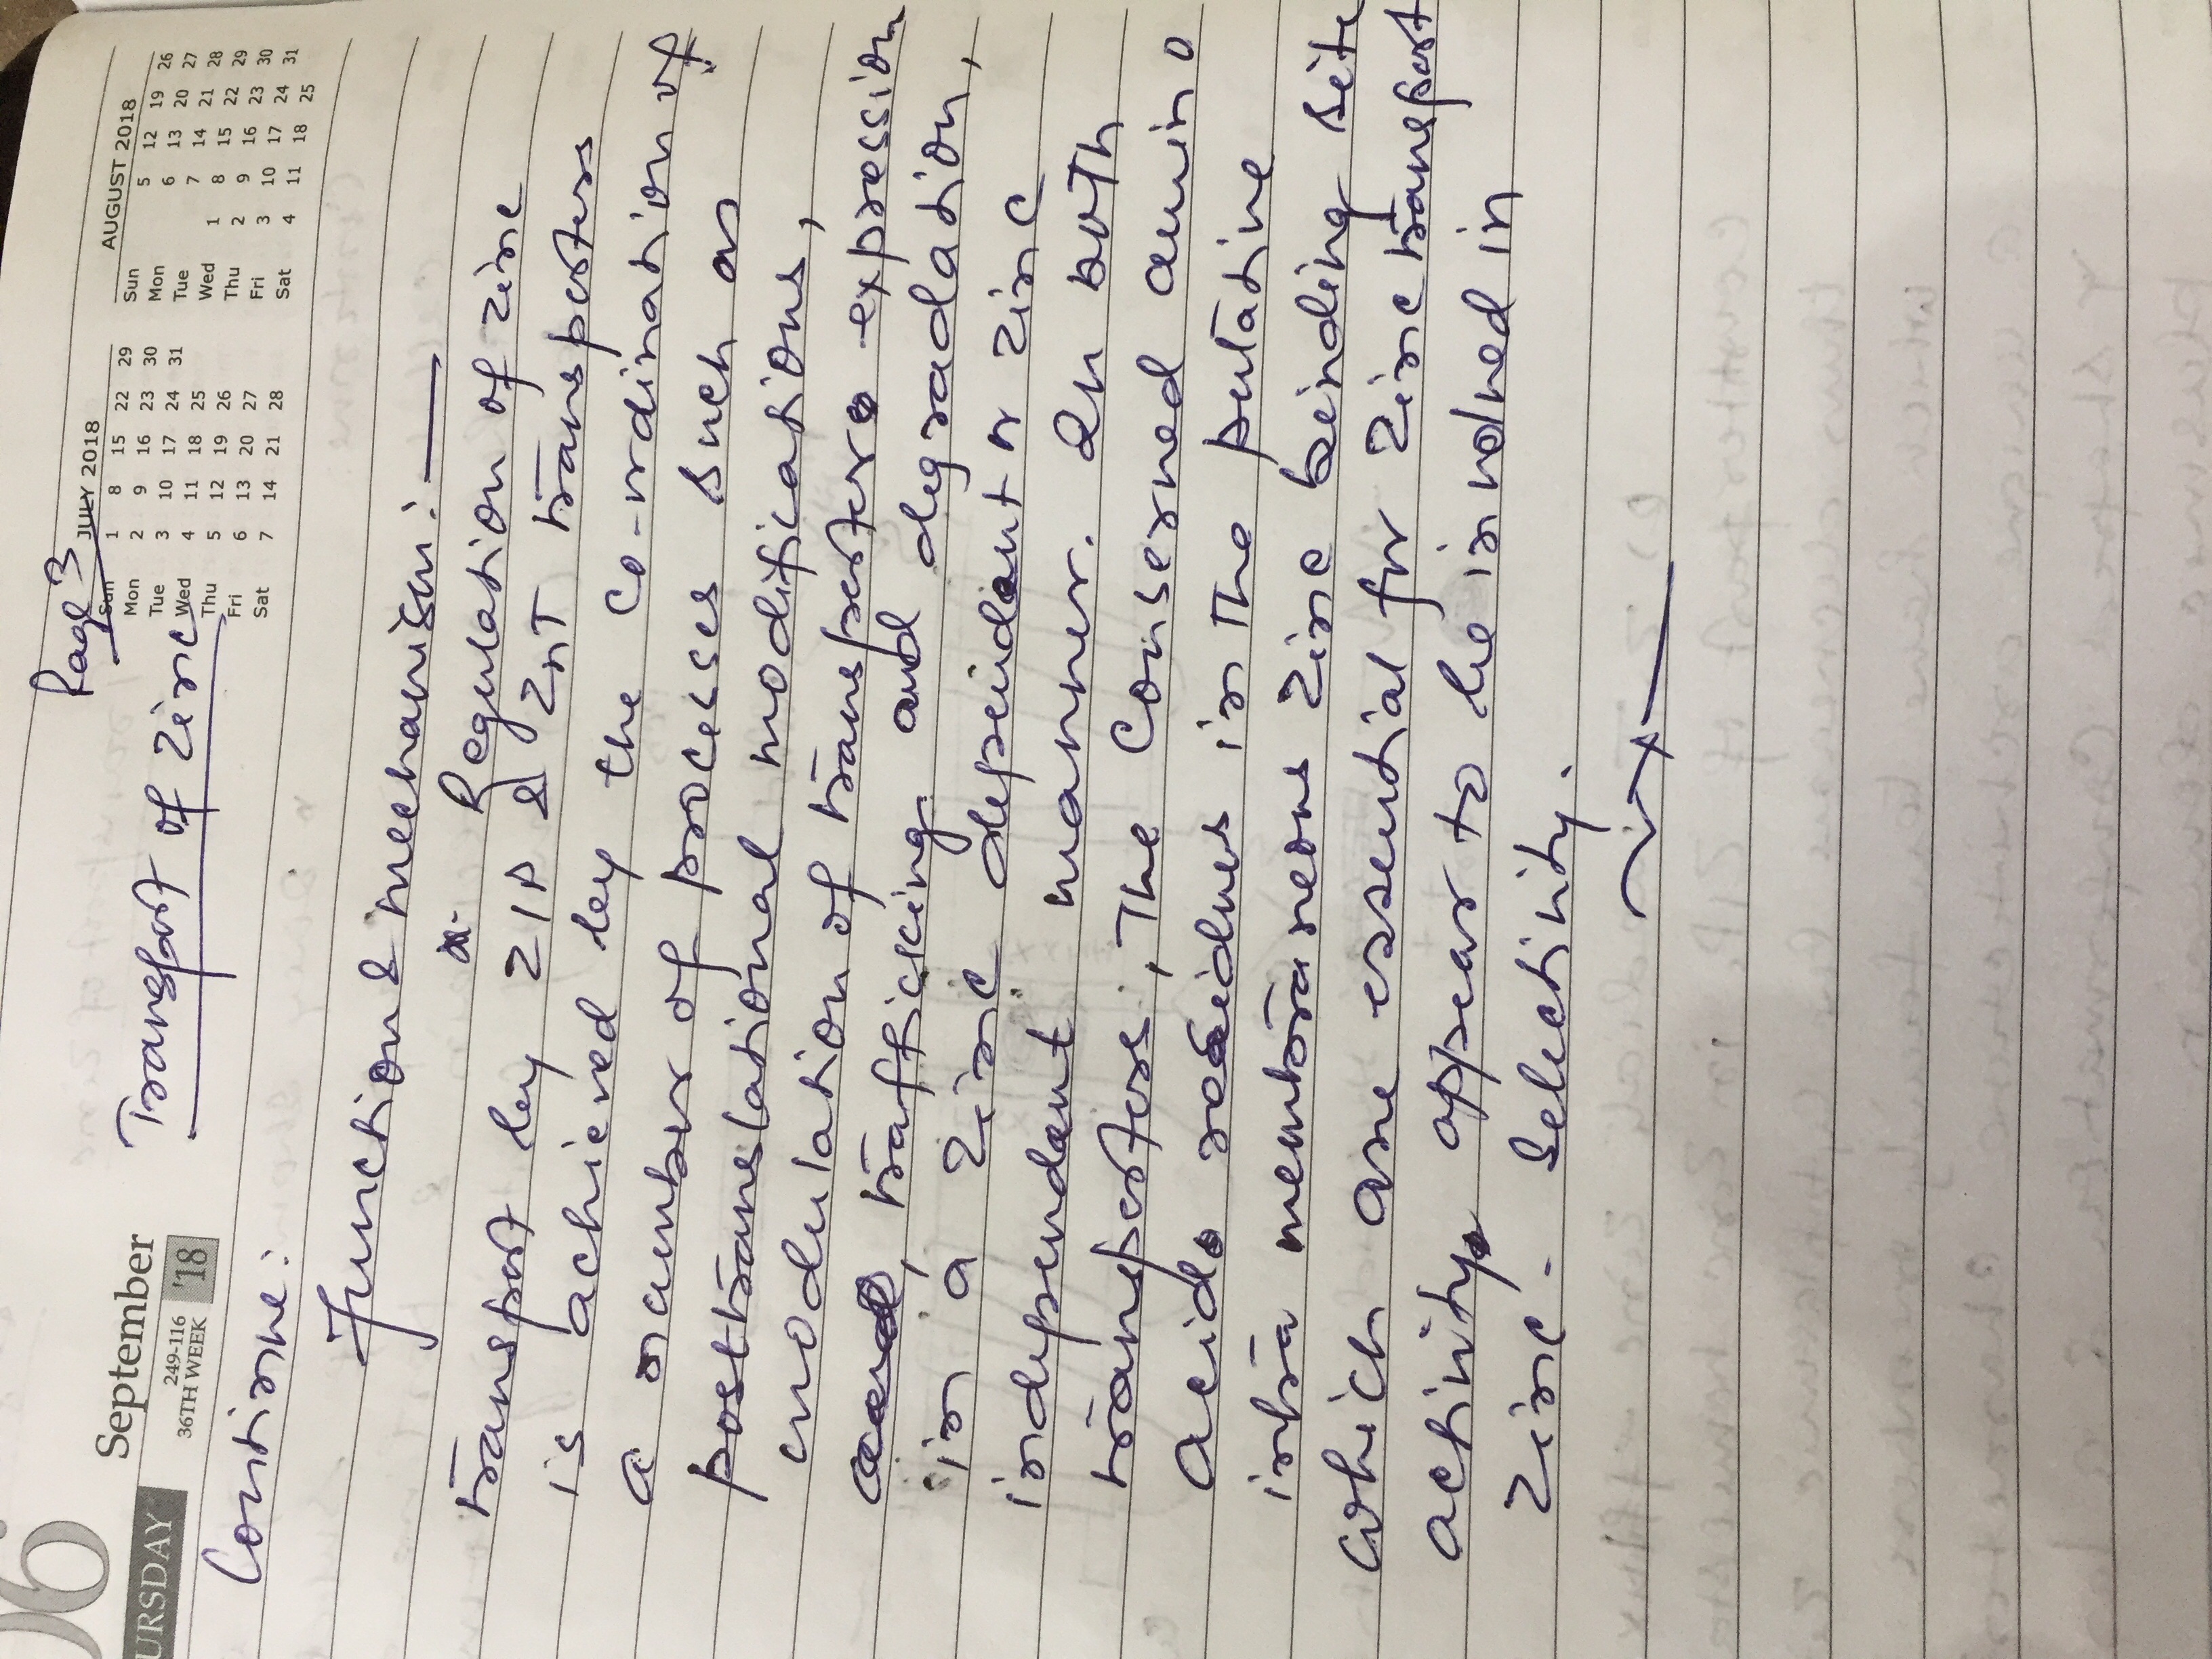 Page 3
06 September
URSDAY
249-116
36TH WEEK '18
Transport of Zinc
JULY 2018
Sun 1 8 15 22 29
Mon 2 9 16 23 30
Tue 3 10 17 24 31
Wed 4 11 18 25
Thu 5 12 19 26
Fri 6 13 20 27
Sat 7 14 21 28
AUGUST 2018
Sun 5 12 19 26
Mon 6 13 20 27
Tue 7 14 21 28
Wed 1 8 15 22 29
Thu 2 9 16 23 30
Fri 3 10 17 24 31
Sat 4 11 18 25
Continue:
Function & mechanism: —
Regulation of zinc
transport by ZIP & ZnT transporters
is achieved by the co-ordination of
a number of processes such as
posttranslational modifications,
modulation of transporter expression
, trafficking and degradation,
in a zinc dependant or zinc
independant manner. In both
transporters, The conserved amino
acid residues in The putative
intra membraneous zinc binding site
which are essential for zinc transport
activity appear to be involved in
Zinc - Selectivity.